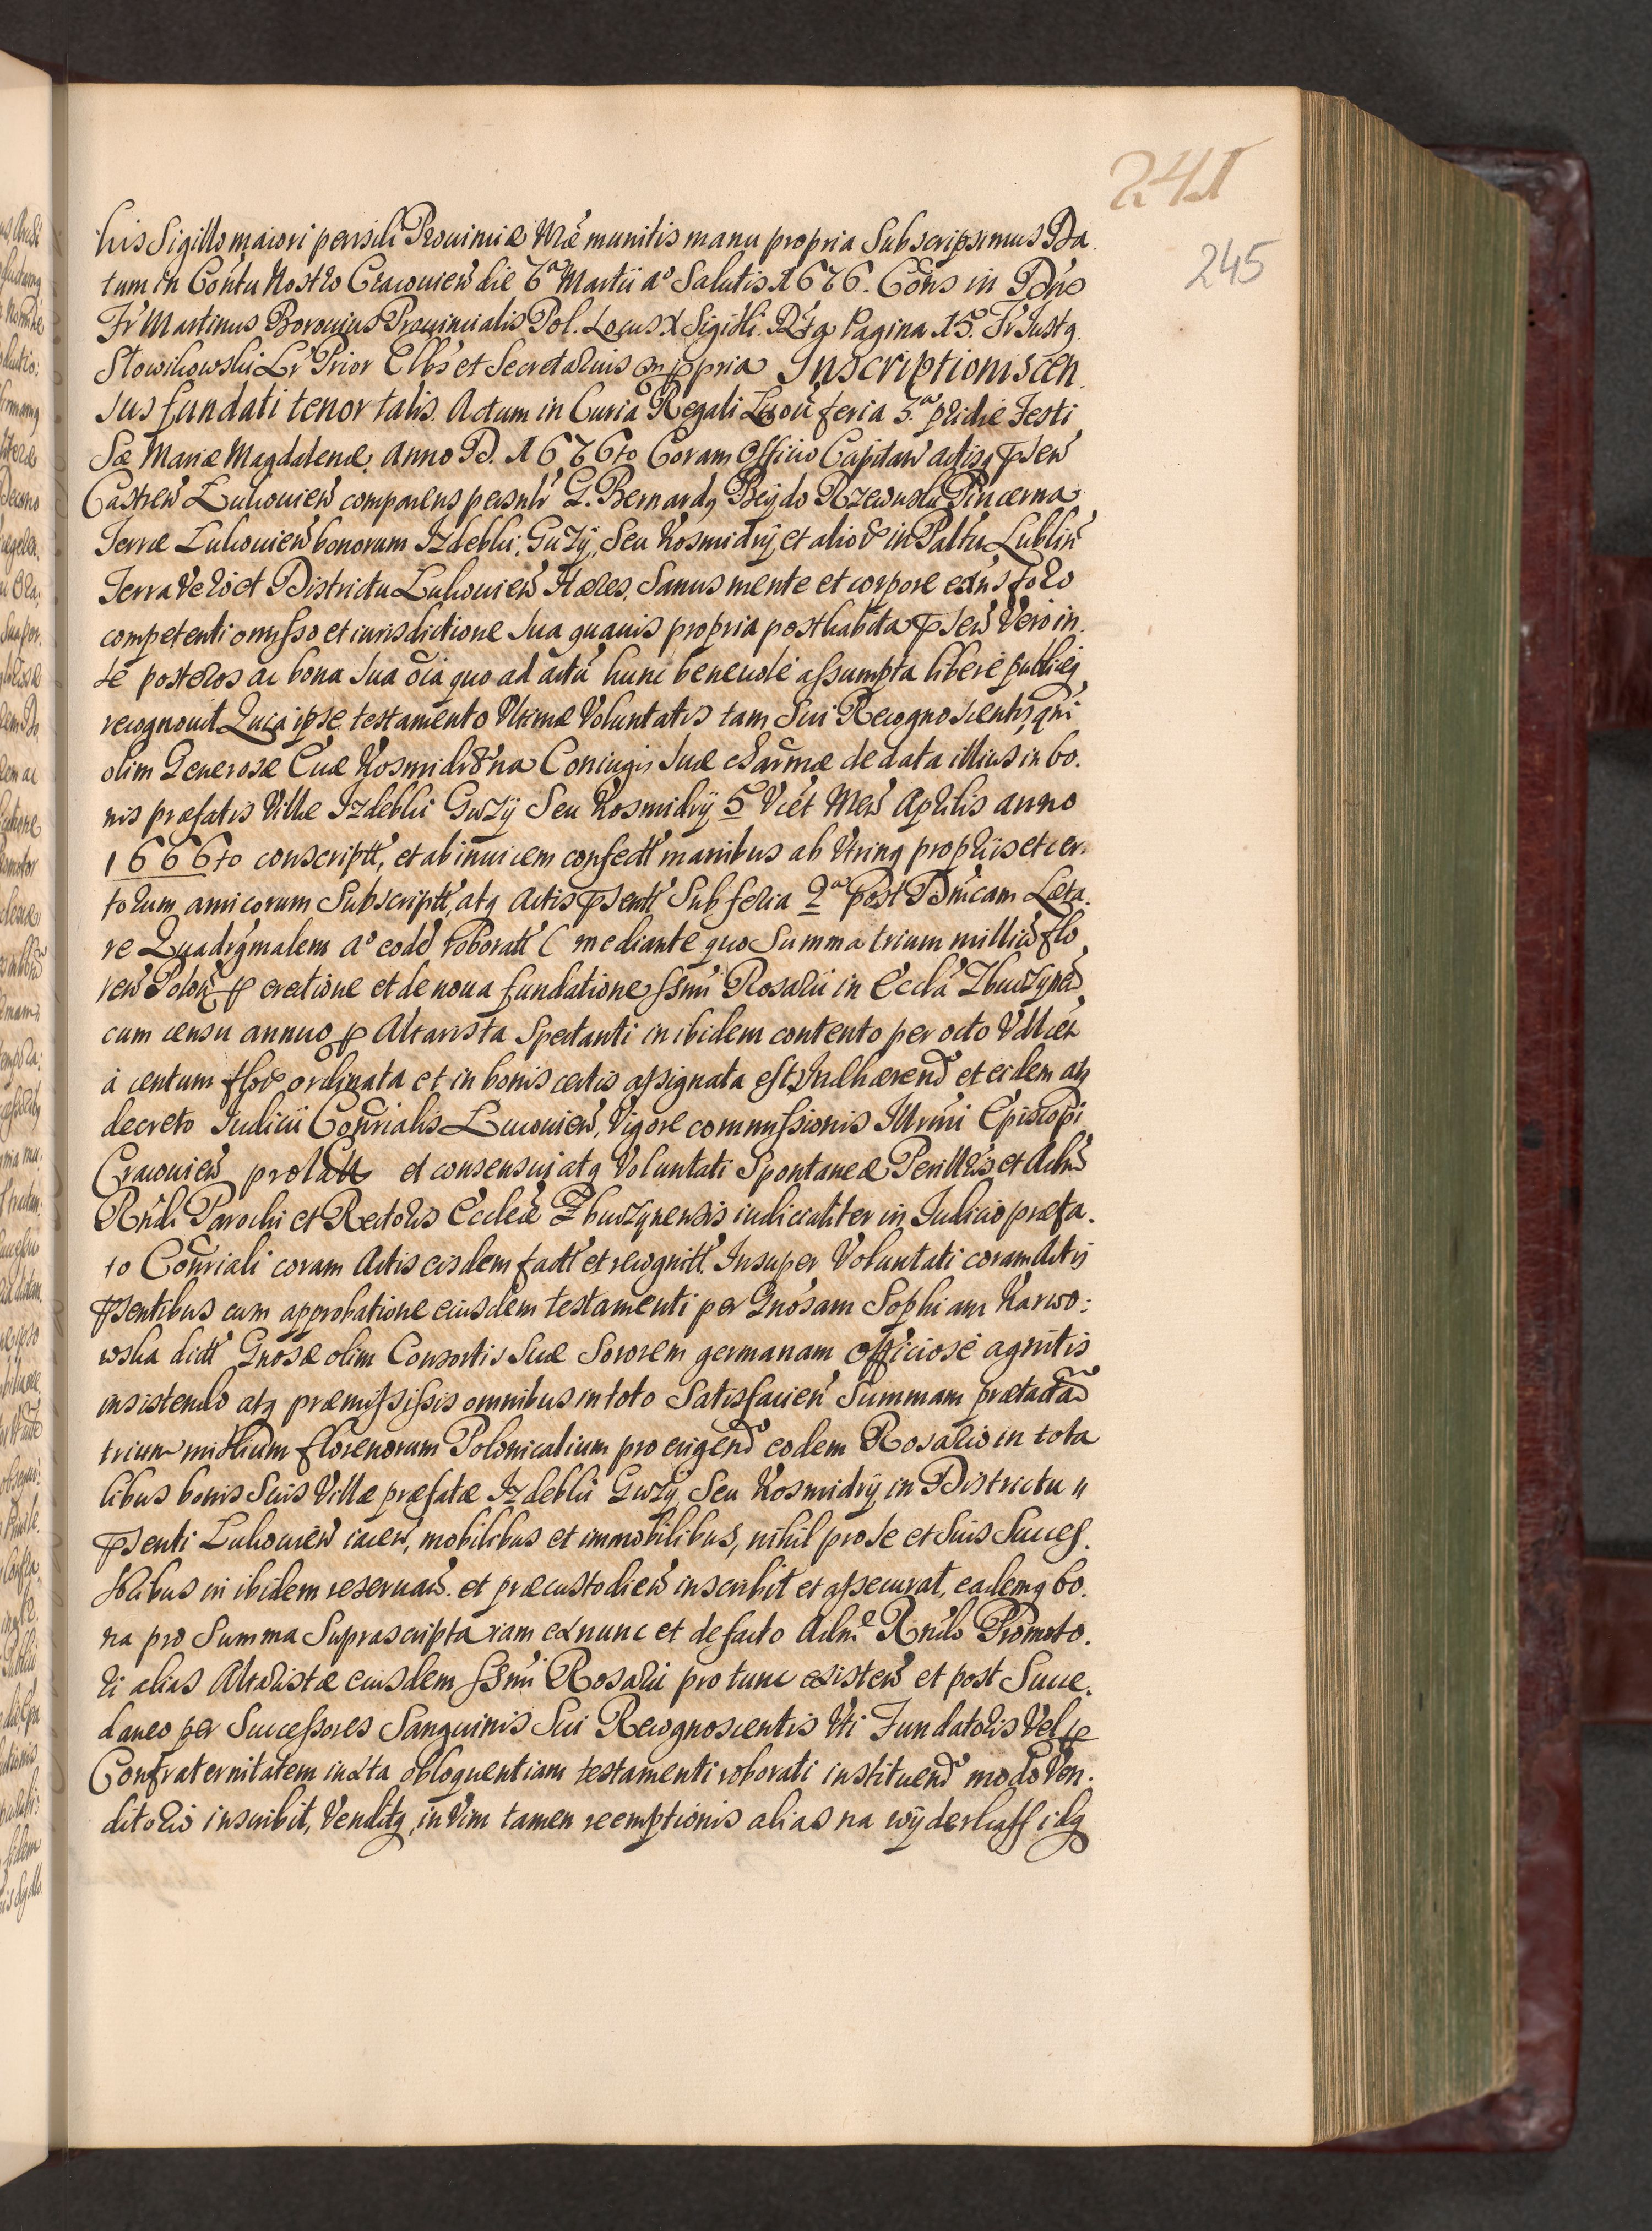 241
245
his Sigillo maiori pensili Prouinciæ Nræ munitis manu propria Subscripsimus Da.
tum in Contu Nostro Cracouien die 7a Martii ao Salutis 1676. Cons in Dno
Fr Martinus Borouius Prouincialis Pol. Locus X Sigilli. Rtq Pagina 15. Fr Justq
Slowikowski Lr Prior Elbs et Secretarius mppria Inscriptionis cen.
sus fundati tenor talis. Actum in Curia Regali feria 3a pridie Festi
Sæ Mariæ Magdalenæ. Anno D. 1676to Coram Officio Capitan actisq psen
Castren Lukouien comparens persnlr G. Bernardq Beydo Rzewuski Pincerna
Terræ Lukouien bonorum Izdebki, Guzÿ, Seu Kosmidrÿ, et alior in Paltu Lublin
Terra Vero et Districtu Lukouien Hæres, Sanus mente et corpore existens foro
competenti omisso et iurisdictione sua quauis propria posthabita psen Vero in.
se posteros ac bona sua oia quo ad actu hunc beneuole assumpta libere publicéq
recognouit Quia ipse testamento Vltimæ Voluntatis tam Sui Recognoscentis, qm
olim Generosæ Euæ Kosmidrona Coniugis suæ charmæ de data illius in bo.
nis præfatis Villæ Izdebki Guzÿ Seu Kosmidrÿ 5 Vlet Men Aprilis anno
1666to conscriptt, et abinuicem confectt manibus ab Vtrinq proprÿs et cer.
torum amicorum Subscriptt, atq actis psentt Sub feria 2a post Dnicam Læta.
re Quadrgmalem ao eode roboratt (mediante quo Summa trium milliu flo.
ren Polon p eretione et de noua fundatione ssmi Rosarii in Eccla Zbuczynen
cum censu annuo p Altarista Spectanti in ibidem contento per octo Vdlicet
à centum flor ordinata et in bonis certis assignata est) Inhærend et eidem atq
decreto Iudicii Conrialis Lucouien, Vigore commissionis Illrmi Episcopi
Cracouien prolatt et consensui atq Voluntati Spontaneæ Perillris et Adm
Rndi Parochi et Rectoris Ecclesiæ Zbuczynensis iudicialiter in Iudicio præfa.
to Conriali coram Actis eisdem factt et recognitt. Insuper Voluntati coram Actis
psentibus cum approbatione eiusdem testamenti per Gnosam Sophiam Karwo:
wska dictt Gnosæ olim Consortis Suæ Sororem germanam officiosè agnitis
insistendo atq præmississis omnibus in toto Satisfacien Summam prætactam
trium millium florenorum Polonicalium pro erigend eodem Rosario in tota
libus bonis Suis Villæ præfatæ Izdebki Guzÿ Seu Kosmidrÿ in Districtu "
psenti Lukouien iacen, mobilibus et immobilibus, nihil pro se et Suis Succes.
soribus in ibidem reseruan. et præcustodien inscribit et assecurat, eademq bo.
na pro Summa Suprascripta iam ex nunc et de facto Adm Rndo Promoto.
ri alias Altaristæ eiusdem ssmi Rosarii pro tunc existen et post Succe.
daneo per Successores Sanguinis Sui Recognoscentis Vti Fundatoris Vel p
Confraternitatem iuxta obloquentiam testamenti roborati instituend modo Ven.
ditorio inscribit, Venditq, in Vim tamen reemptionis alias na wÿderkaff idq